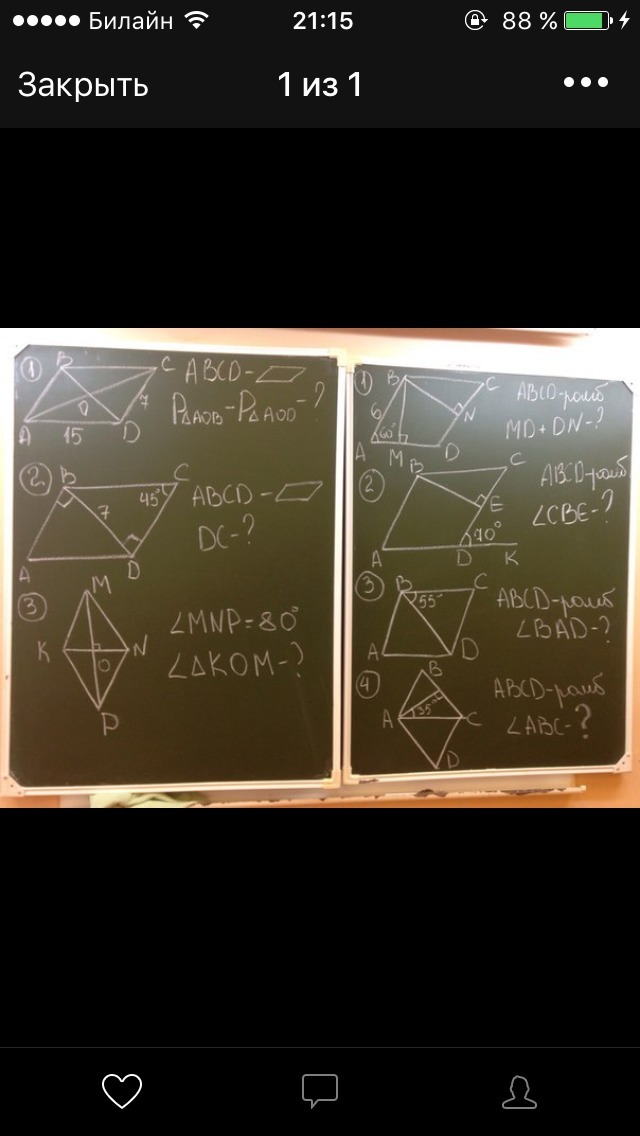 Билайн 21:15 88 %
Закрыть 1 из 1
1 B C ABCD-
O 7 P∆AOB-P∆AOD-?
A 15 D
2 B C
7 45° ABCD-
DC-?
A D
3 M
∠MNP=80°
K N ∠∆KOM-?
O
P
1 B C ABCD-ромб
6 N MD+DN-?
60°
A M D
2 B C ABCD-ромб
E ∠CBE-?
70°
A D K
3 B C ABCD-ромб
55° ∠BAD-?
A D
4 B ABCD-ромб
A 35° C ∠ABC-?
D